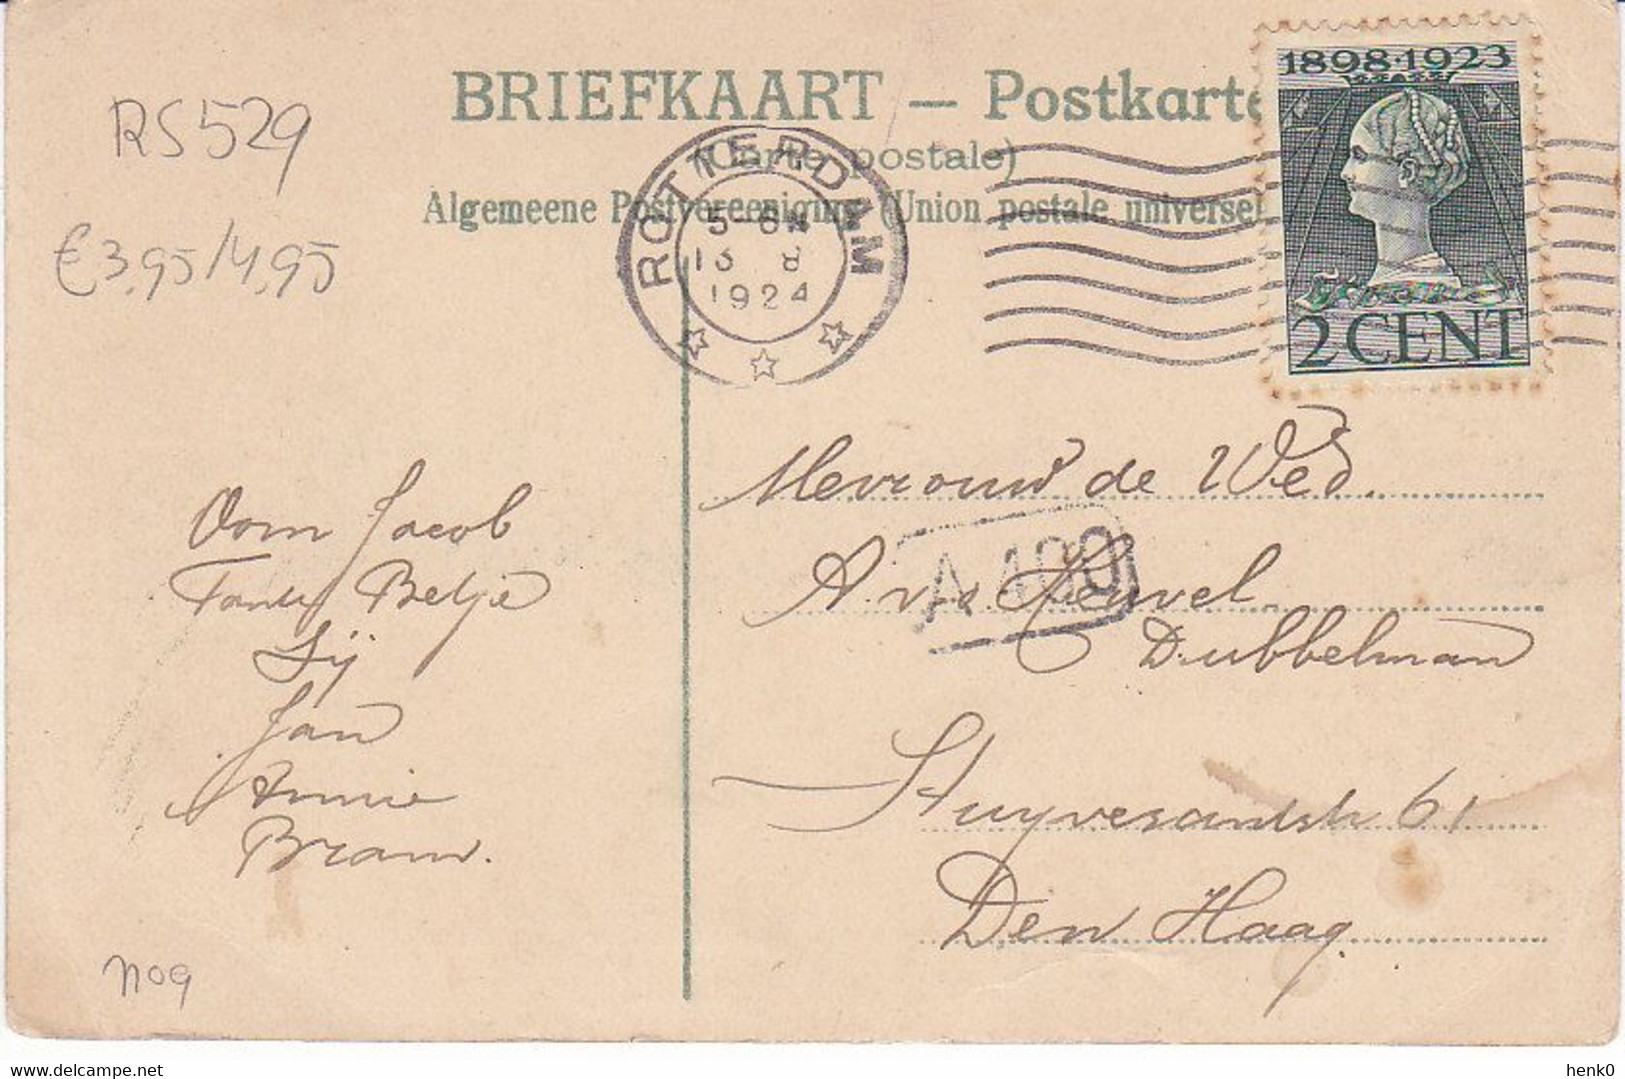 BRIEFKAART — Postkarte
(Carte postale)
Algemeene Postvereeniging (Union postale universel
ROTTERDAM
5-6N
13 8
1924
1898·1923
2 CENT
RS529
€3,95/4,95
Oom Jacob
Tante Betje
Sij
Jan
Annie
Bram.
Mevrouw de Wed.
A v.d. Heuvel
Dubbelman
Stuyvesantstr 61
Den Haag.
A 400
henk0